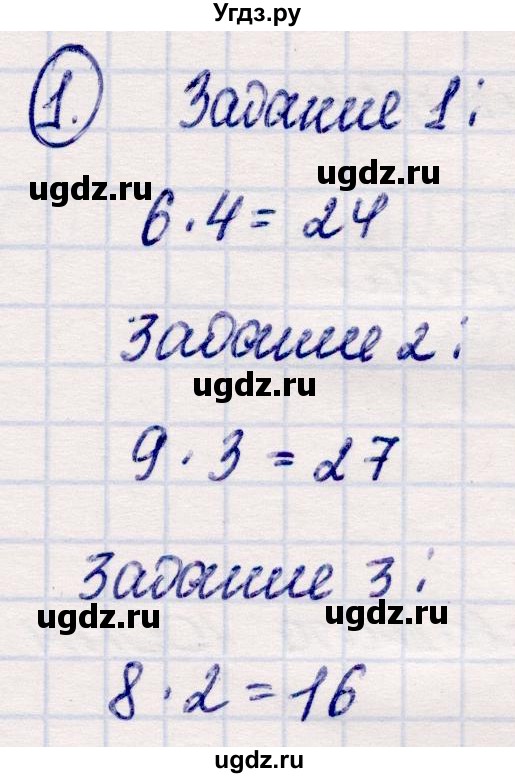 Угдз.ру
1. Задание 1:
ugdz.ru ugdz.ru
6 · 4 = 24
Задание 2:
ugdz.ru
9 · 3 = 27
Задание 3:
ugdz.ru ugdz.ru
8 · 2 = 16
ugdz.ru